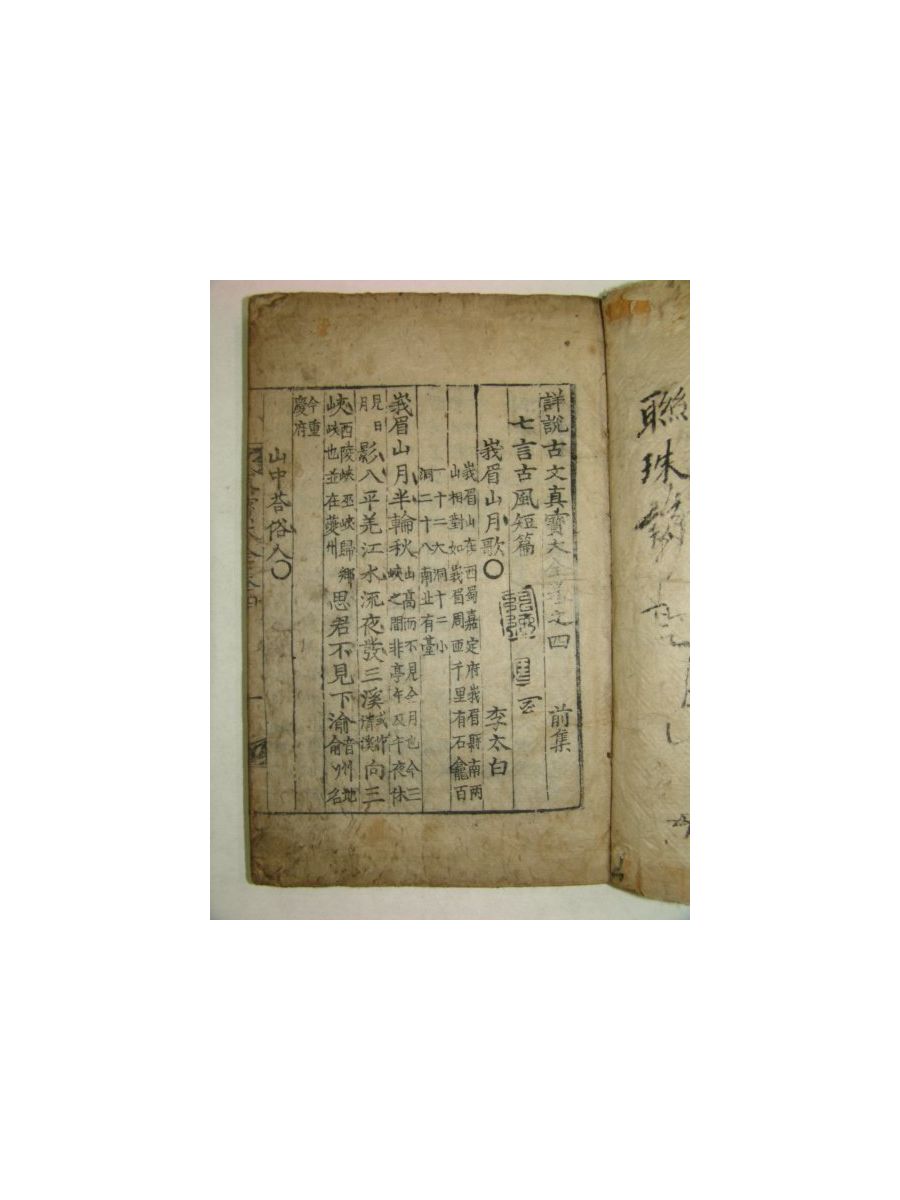 聯珠
詳說古文真寶大全卷之四 前集
七言古風短篇
峩眉山月歌○ 李太白
峩眉山在西蜀嘉定府峩眉縣南兩
山相對如峩眉周匝千里有石龕百
一十二大洞十二小
洞二十八南北有臺
峩眉山月半輪秋山高而不見全月也今三
峽之間非亭午及午夜休
見日
月影入平羌江水流夜發三溪或作
清溪向三
峽西陵峽巫峽歸鄉
峽也並在夔州思君不見下渝音州地
俞 名
今重
慶府
山中荅俗人○